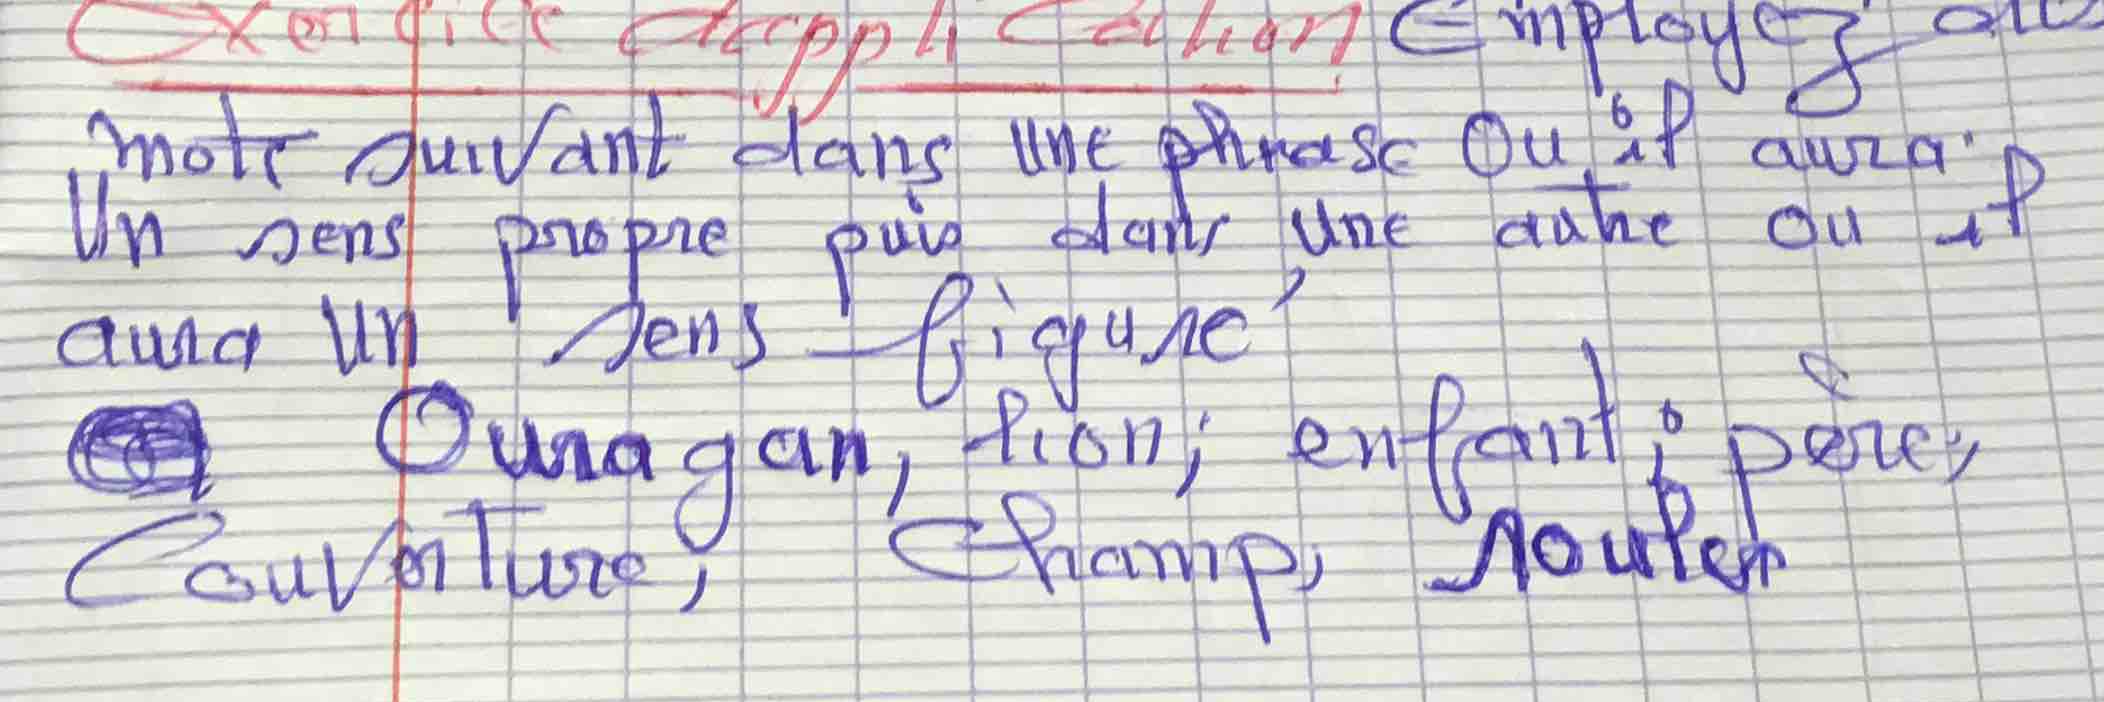 Exercice d'application Employez
mots suivant dans une phrase Ou il aura
Un sens propre puis dans une autre ou il
aura Un sens figuré
Ouragan, lion; enfant; père,
Couverture, Champ, rouler